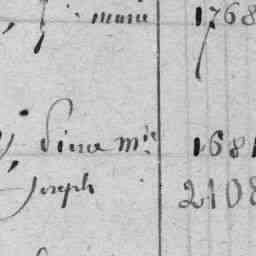 marie 1768
mie 1681
Joseph 2108